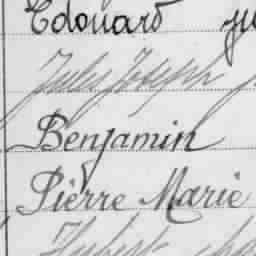 Edouard
Jules Joseph
Benjamin
Pierre Marie
Hubert